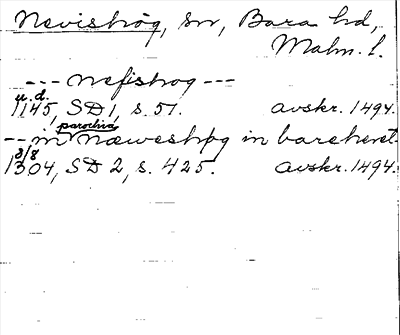 Nevishög, sn, Bara hd,
Malm. l.
--- Nefishog ---
u.d.
1145, SD 1, s. 51. avskr. 1494.
parochia
-- in Næweshøg in bareheret
8/8
1304, SD 2, s. 425. avskr. 1494.